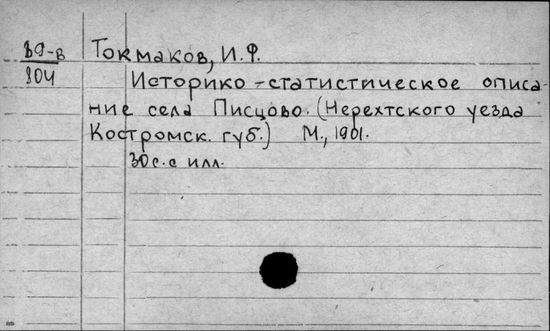 89-в Токмаков, И.Ф.
804 Историко-статистическое описа-
ние села Писцово. (Нерехтского уезда
Костромск. губ.) М., 1901.
30 с. с илл.